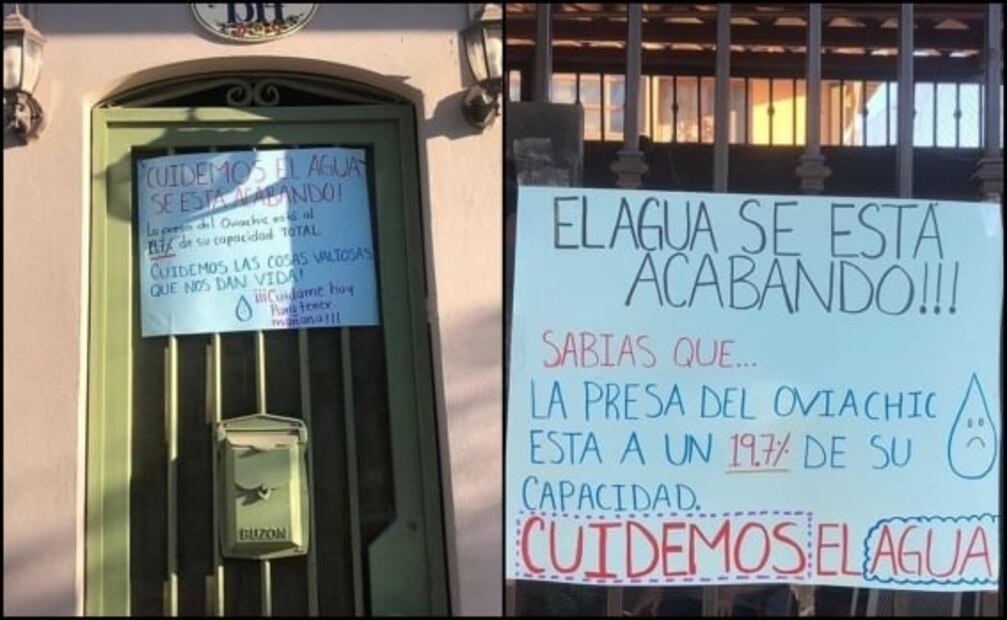 CUIDEMOS EL AGUA
SE ESTÁ ACABANDO!
La presa del Oviachic está al
19.7% de su capacidad TOTAL
CUIDEMOS LAS COSAS VALIOSAS
QUE NOS DAN VIDA!
¡¡¡Cuidame hoy
Para tener
mañana!!!
BUZON
EL AGUA SE ESTÁ
ACABANDO!!!
SABIAS QUE...
LA PRESA DEL OVIACHIC
ESTA A UN 19.7% DE SU
CAPACIDAD.
CUIDEMOS EL AGUA